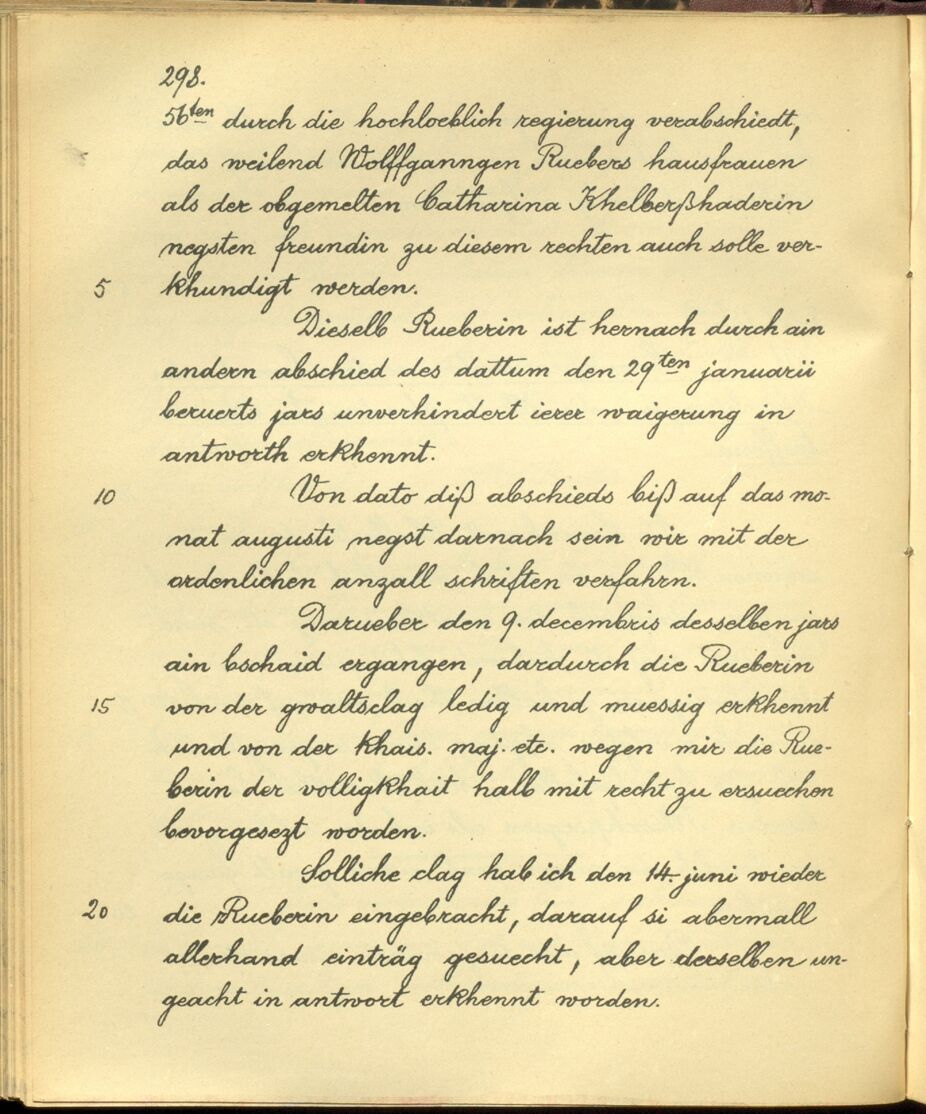 298.
56ten durch die hochloeblich regierung verabschiedt,
das weilend Wolffganngen Ruebers hausfrauen
als der obgemelten Catharina Khelberßhaderin
negsten freundin zu diesem rechten auch solle ver-
5 khundigt werden.
Dieselb Rueberin ist hernach durch ain
andern abschied des dattum den 29ten januarii
beruerts jars unverhindert ierer waigerung in
antworth erkhennt.
10 Von dato diß abschieds biß auf das mo-
nat augusti negst darnach sein wir mit der
ordenlichen anzall schriften verfahrn.
Darueber den 9. decembris desselben jars
ain bschaid ergangen, dardurch die Rueberin
15 von der gwaltsclag ledig und muessig erkhennt
und von der khais. maj. etc. wegen mir die Rue-
berin der volligkhait halb mit recht zu ersuechen
bevorgesezt worden.
Solliche clag hab ich den 14. juni wieder
20 die Rueberin eingebracht, darauf si abermall
allerhand einträg gesuecht, aber derselben un-
geacht in antwort erkhennt worden.